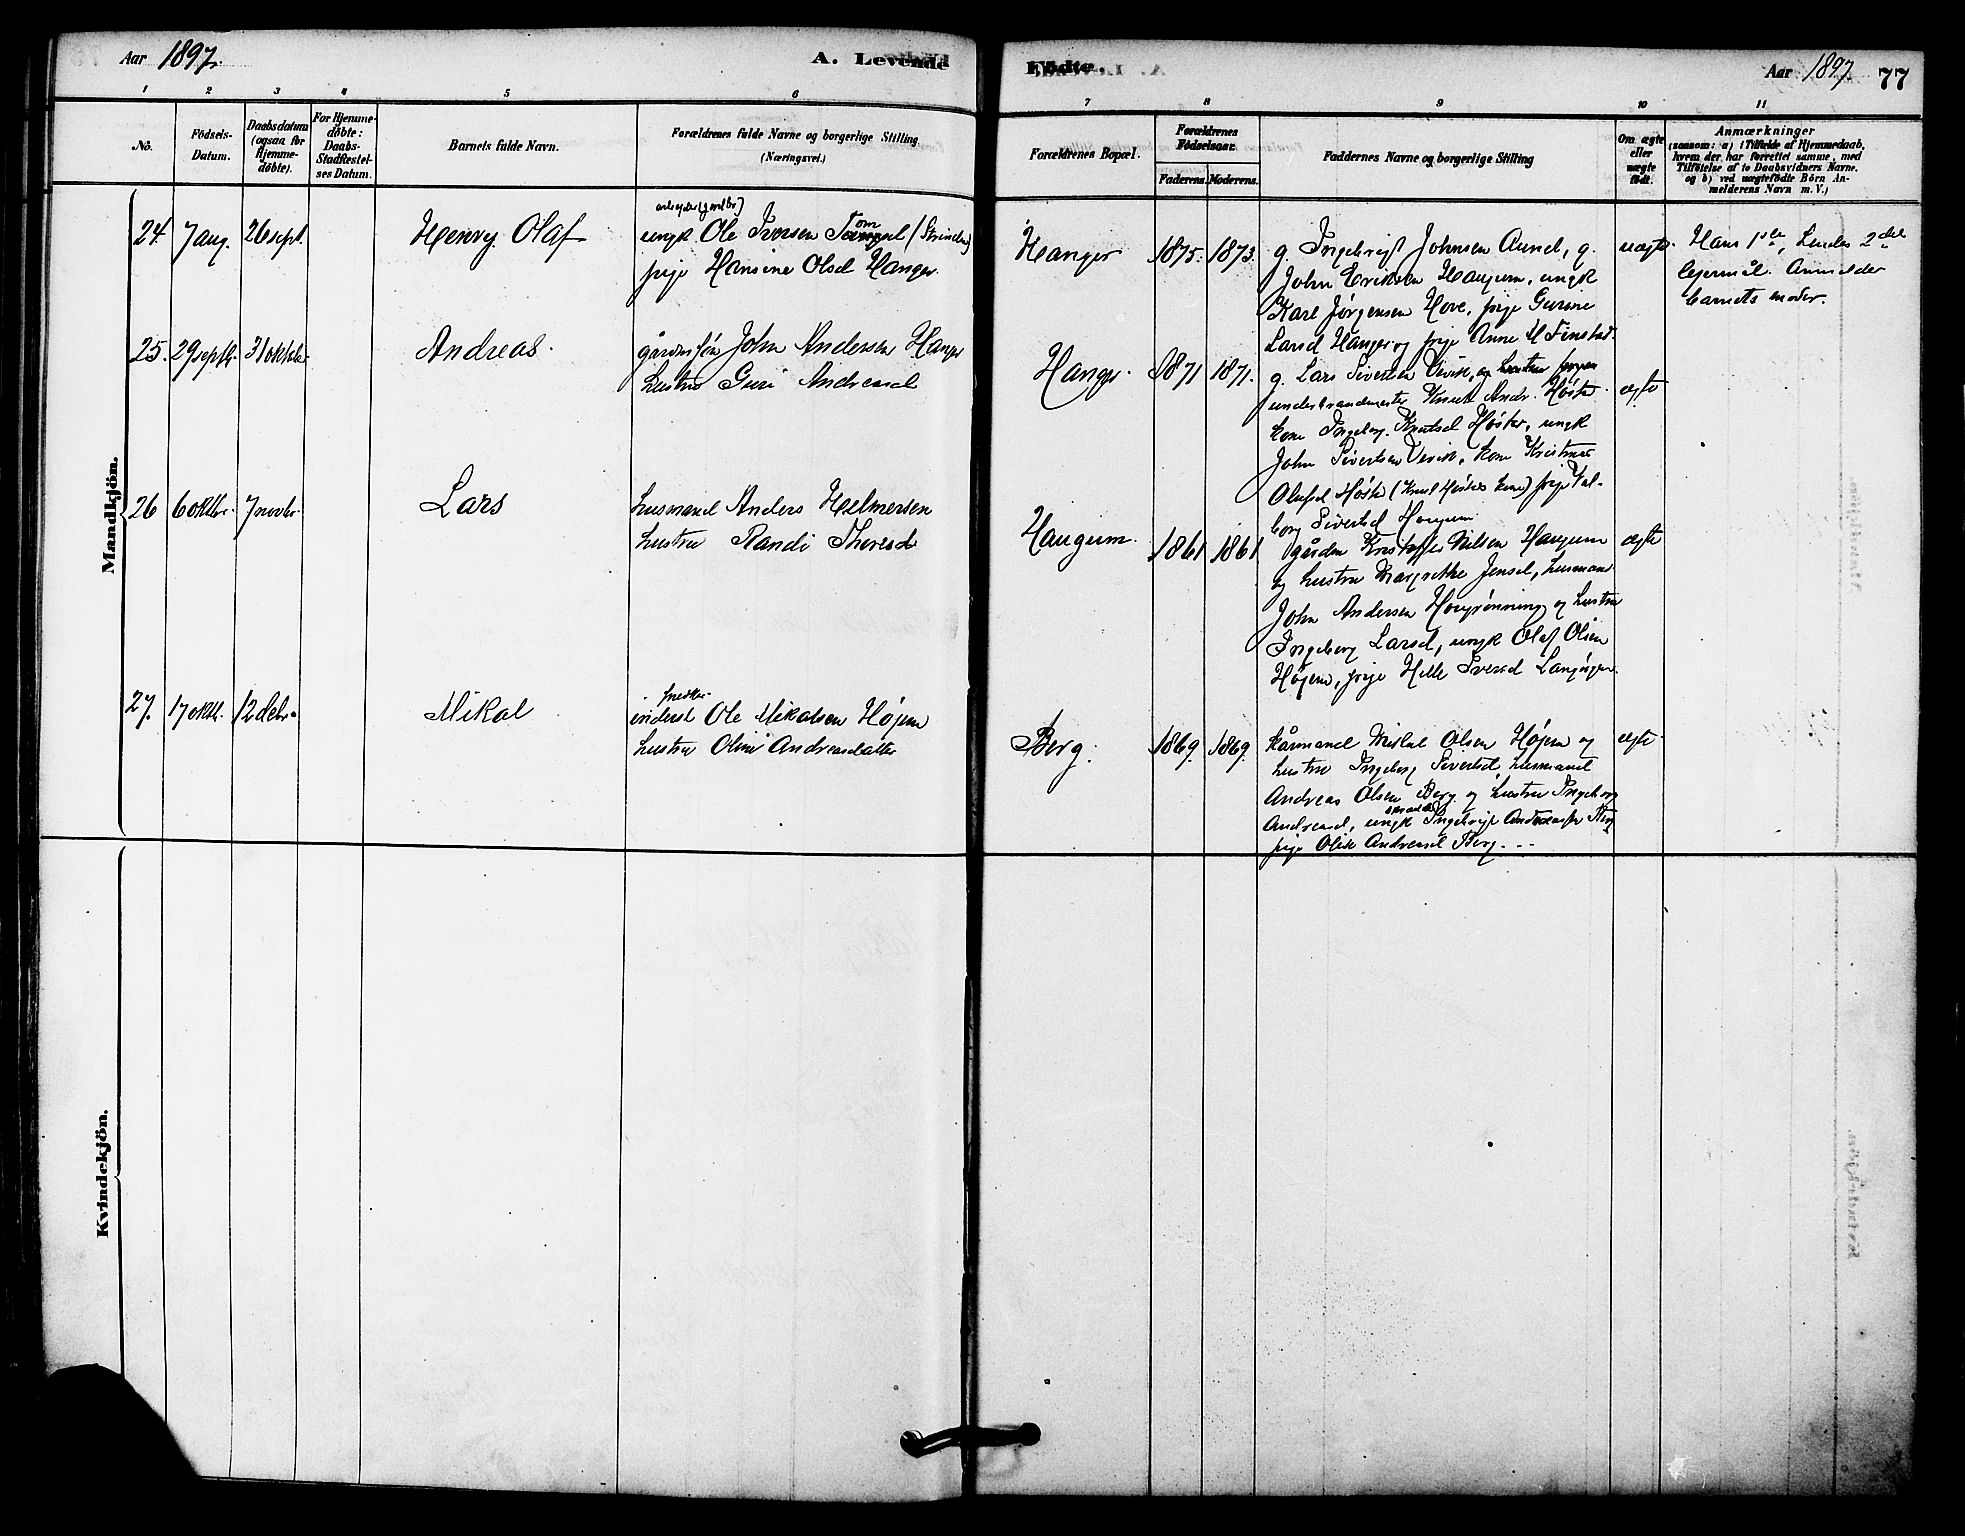 Aar 1897.
A. Levende
Födte.
Aar 1897
77
1 2 3 4 5 6 7 8 9 10 11
No.
Födsels-
Datum.
Daabsdatum
(ogsaa for
Hjemme-
döbte).
For Hjemme-
döbte:
Daabs-
Stadfæstel-
ses Datum.
Barnets fulde Navn.
Forældrenes fulde Navne og borgerlige Stilling
(Næringsvei.)
Forældrenes Bopæl.
Forældrenes
Födselsaar.
Faderens. Moderens.
Faddernes Navne og borgerlige Stilling
Om ægte
eller
uægte
födt.
Anmærkninger
(saasom: a) i Tilfælde af Hjemmedaab,
hvem der har forrettet samme, med
Tilföielse af to Daabsvidners Navne,
og b) ved uægtefödte Börn An-
melderens Navn m. V.)
Mandkjön.
24 7 aug. 26 sept.
Henry Olaf
ungk Ole Iversen (Strinden)
pige Hansine Olsd Hanger
Hanger
1875. 1873.
g. Ingebrigt Johnsen Aund, g.
John Eriksen Haugum, ungk
Karl Jørgensen Hove, pige Gurine
Larsd Hanger og pige Anne M Finstad.
uægte.
Hans 1ste, hendes 2det
lejermål. Anmelder
barnets moder.
25. 29 septbr. 31 oktobr.
Andreas.
John Andersen Hanger
hustru Guri Andreasd
Hanger.
1871 1871.
g. Lars Sivertsen Vivik, og hustru
Knut Andr. Høster
kone Ingeborg Knutsd Høster, ungk
John Sivertsen Vivik, kone Kristine
Olufsd Høster (Knut Høsters kone) pige Val-
borg Sivertsd Haugum
ægte
26 6 oktbr. 7 novbr.
Lars
husmand Anders Helmersen
hustru Randi Thoresd
Haugum.
1861 1861.
gårdm Kristoffer Nilsen Haugum
og hustru Margrethe Jensd, husmand
John Andersen Hougrønning og hustru
Ingeborg Larsd, ungk Olaf Olsen
Højem, pige Helle Iversd
ægte
27. 17 oktbr. 12 debr.
Mikal
snedker
inderst Ole Mikalsen Højem
hustru Oline Andreasdatter
Berg.
1869. 1869.
kårmand Mikal Olsen Højem og
hustru Ingeborg Sivertsd, husmand
Andreas Olsen Berg og hustru Ingeborg
Andreasd, ungk Ingebrigt Andreasen Berg
pige Olise Andreasd Berg. - -
ægte
Kvindekjön.